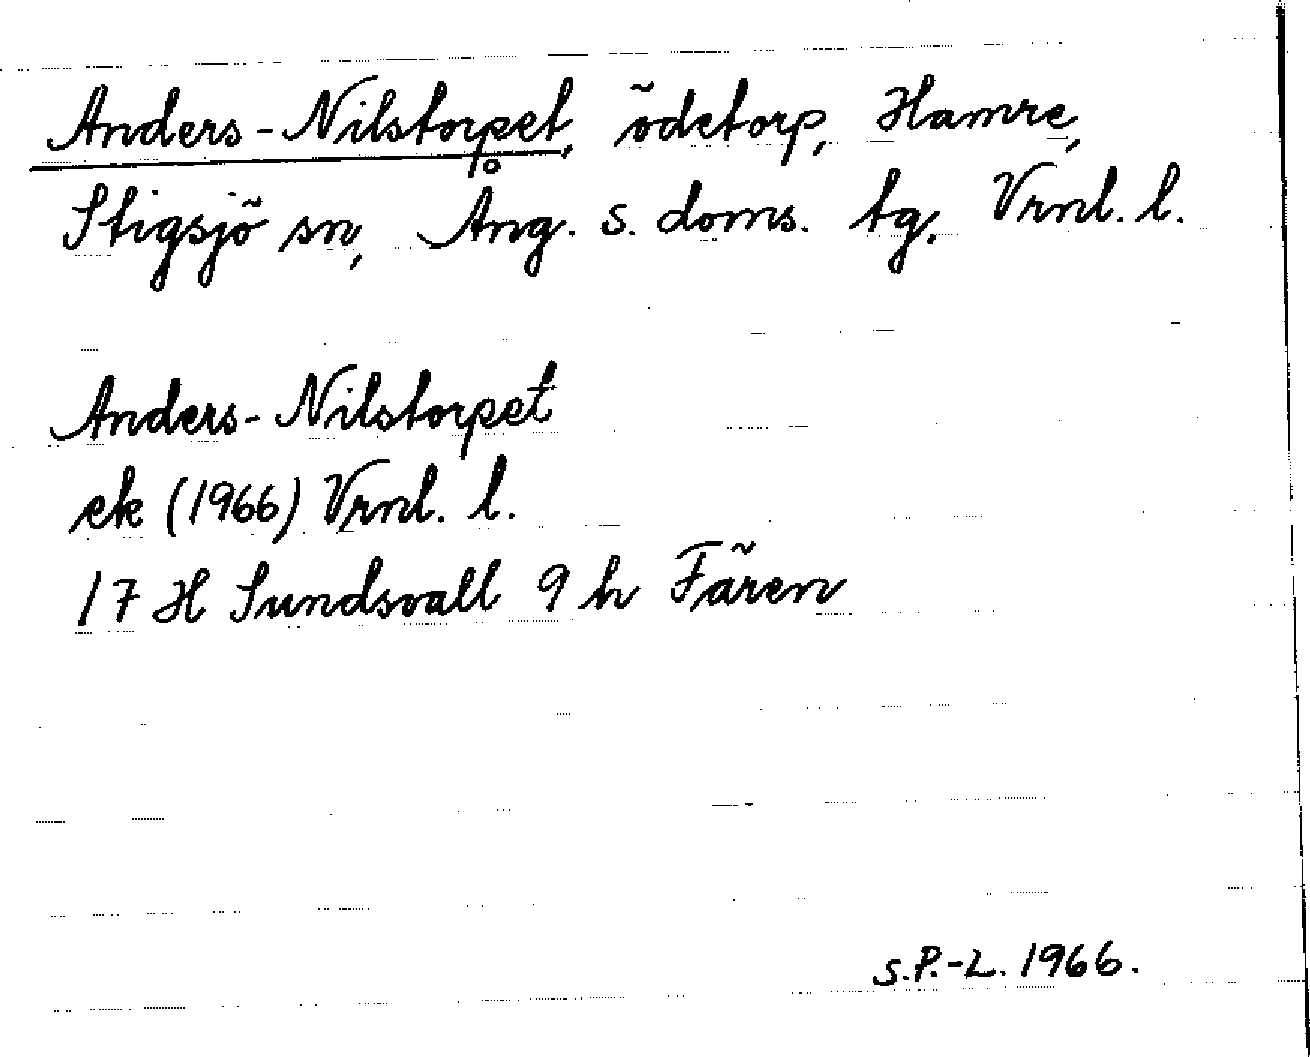 Anders-Nilstorpet, ödetorp, Hamre,
Stigsjö sn, Ång. s. doms. tg. Vrnl. l.
Anders-Nilstorpet
ek (1966) Vrnl. l.
17 H Sundsvall 9 h Fären
S.P.-L. 1966.